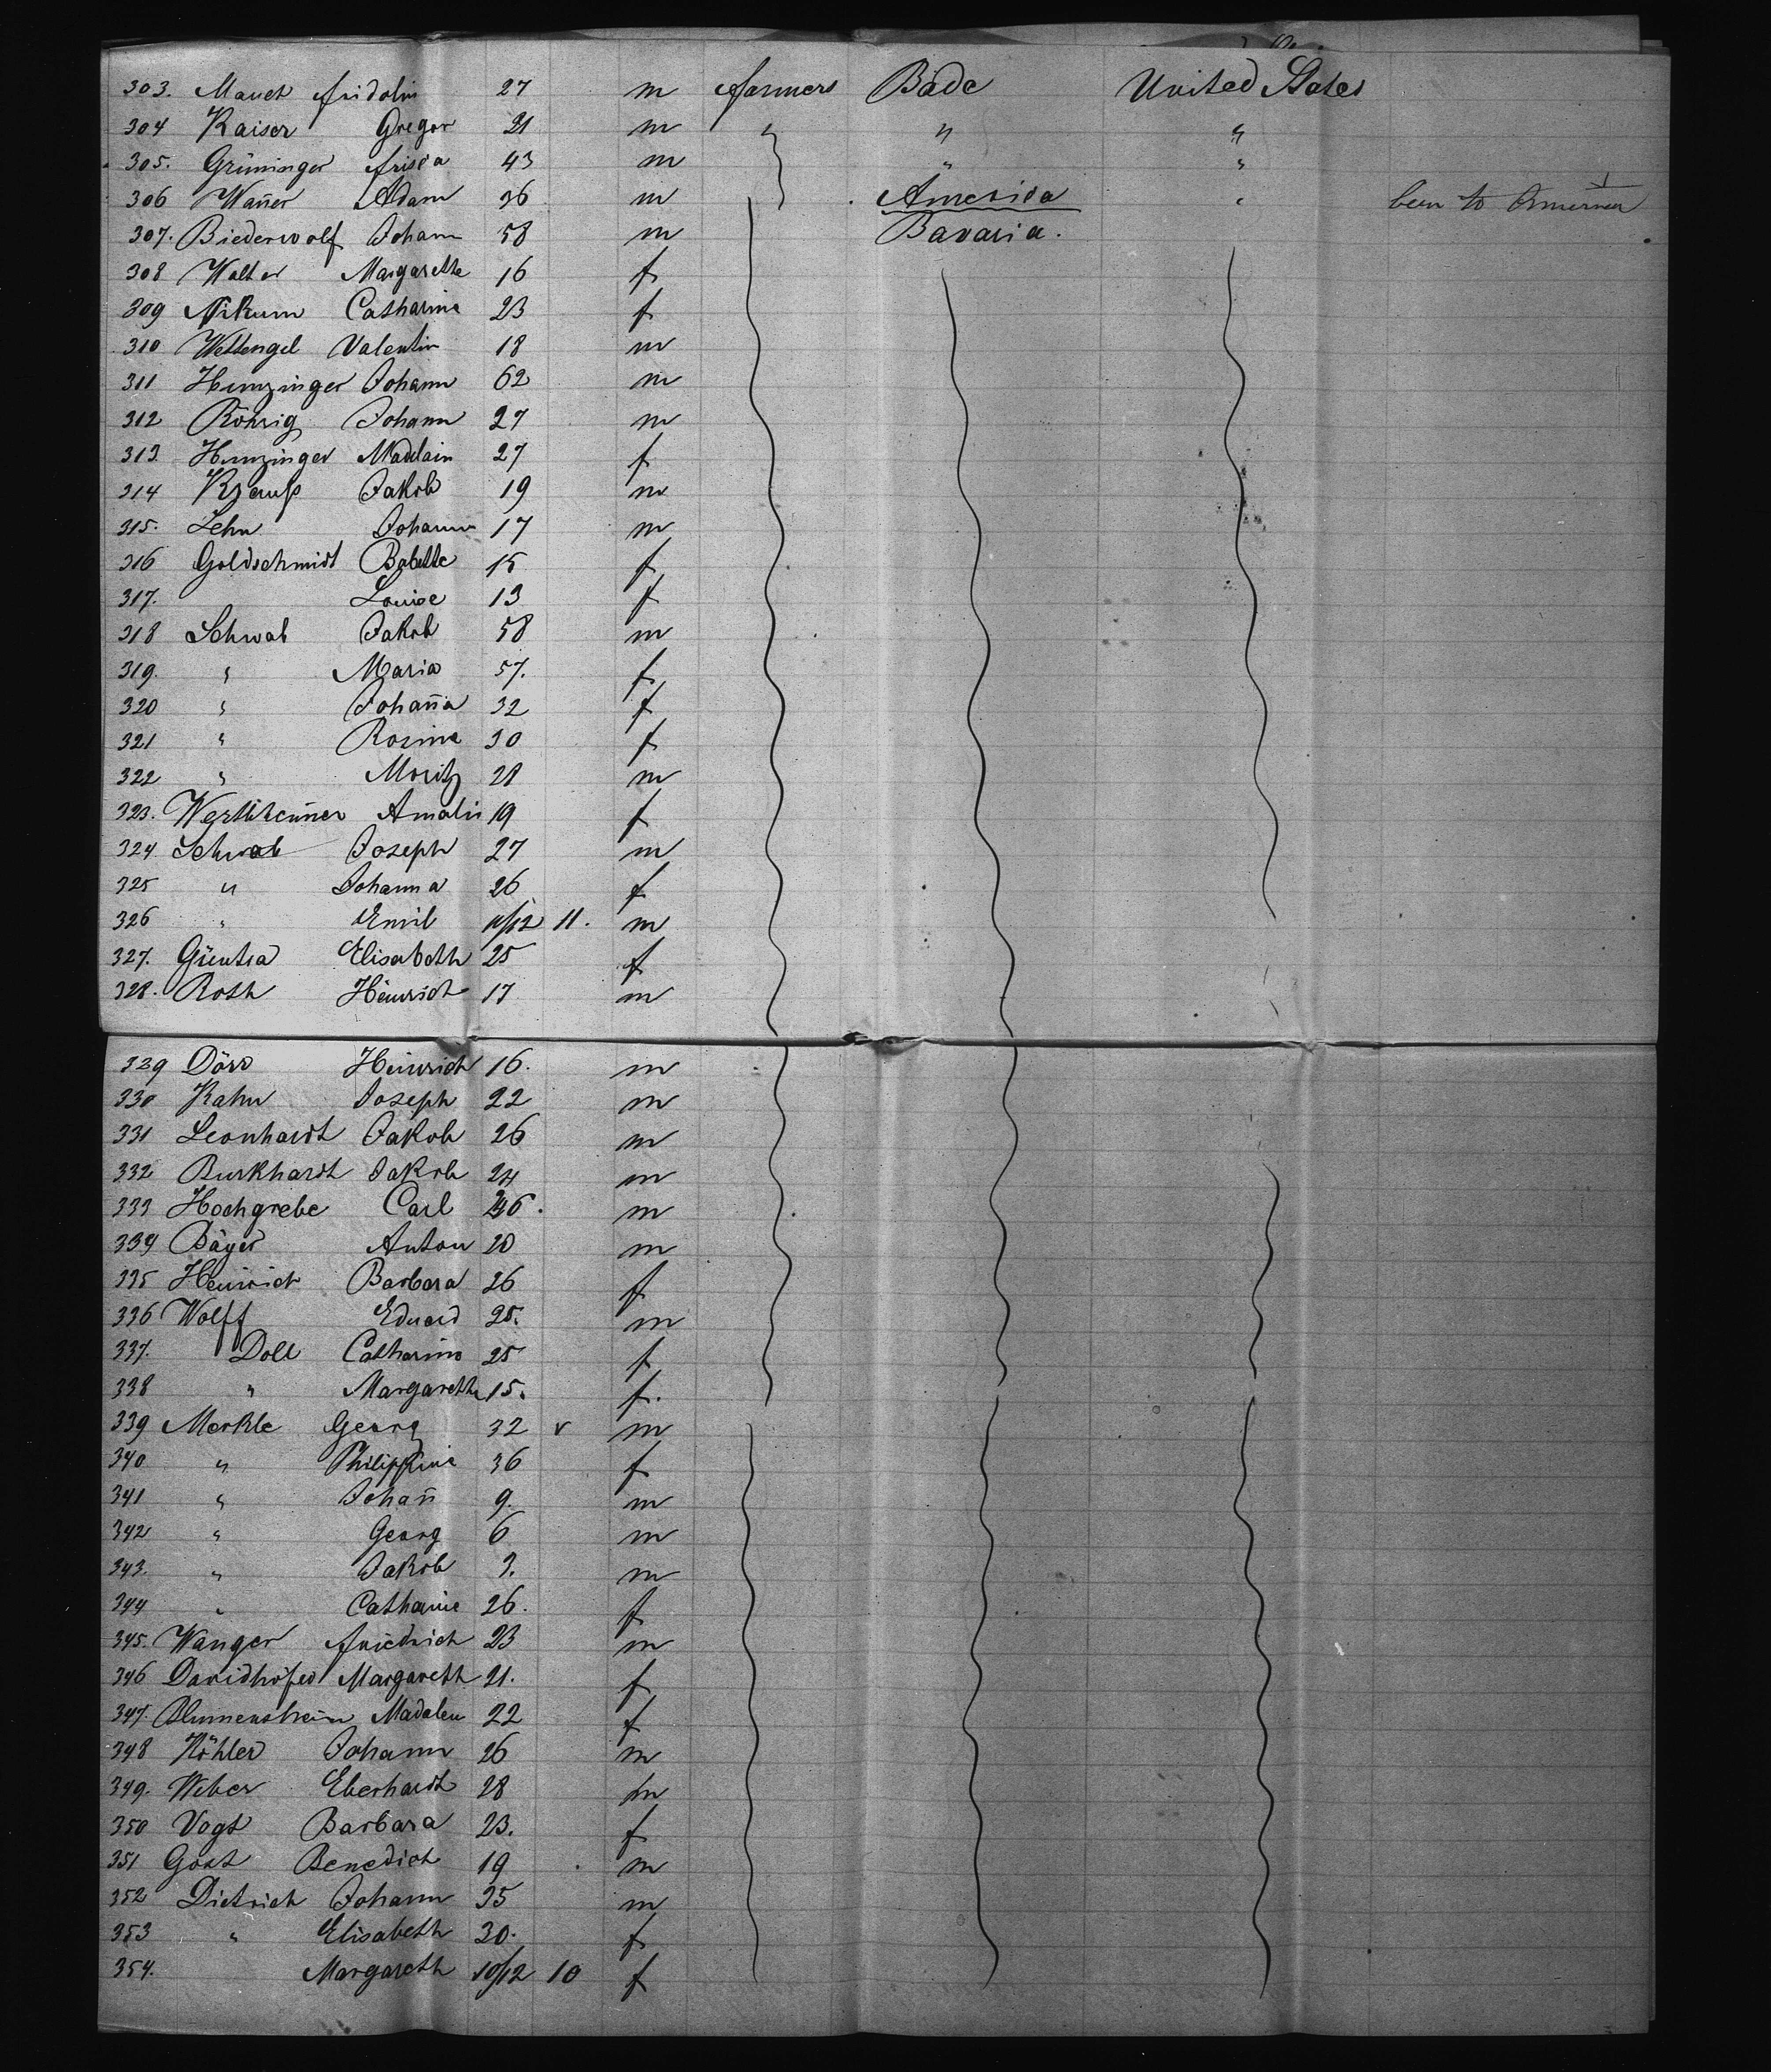 303. Mauch Fridolin 27 m farmers Bade United States
304 Kaiser Gregor 21 m " " "
305. Grüninger 43 m " "
306 Wañer Adam 36 m America " been to America
307. Biederwolf Johann 58 m Bavaria.
308 Walter Margarethe 16 f
309 Nikum Catharina 23 f
310 Wettengel Valentin 18 m
311 Hunzinger Johann 62 m
312 Röhrig Johann 27 m
313. Hunzinger Madlain 27 f
314 Jakob 19 m
315. Lehn Johann 17 m
316 Goldschmidt Babette 15 f
317. Louise 13 f
318 Schwab Jakob 58 m
319. " Maria 57. f
320 " Johaña 32 f
321 " Rosina 30 f
322 " Moritz 28 m
323. Wertheimer Amalie 19 f
324 Schwab Joseph 27 m
325 " Johanna 26 f
326 " Emil 11/12 11. m
327. Elisabeth 25 f
328. Roth Heinrich 17 m
329 Dörr Heinrich 16. m
330 Kahn Joseph 22 m
331 Leonhardt Jakob 26 m
332 Burkhardt Jakob 24 m
333 Hochgrebe Carl m
334 Bäyer Anton 20 m
335 Heinrich Barbara 26 f
336 Wolff Eduard 25. m
337. Doll Catharina 25 f
338 " Margaretha 15. f.
339 Merkle Georg 32 v m
340 " Philippine 36 f
341 " Johañ 9. m
342 " Georg 6 m
343. " Jakob 3. m
344 " Catharine 26. f
345. Wanger Friedrich 23 m
346 Davidhöfer Margareth 21. f
347. Blumenstein Madalen 22 f
348 Köhler Johann 26 m
349. Weber Eberhardt 28 m
350 Vogt Barbara 23. f
351 Benedict 19 m
352 Dietrich Johann 35 m
353 " Elisabeth 30. f
354. Margareth 10/12 10 f